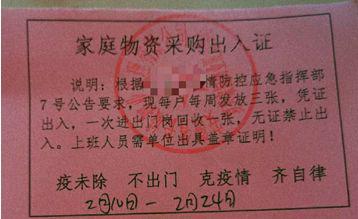 家庭物资采购出入证
说明：根据 情防控应急指挥部
7号公告要求，现每户每周发放三张，凭证
出入，一次进出门岗回收一张，无证禁止出
入。上班人员需单位出具盖章证明！
疫未除 不出门 克疫情 齐自律
2月10日 — 2月24日